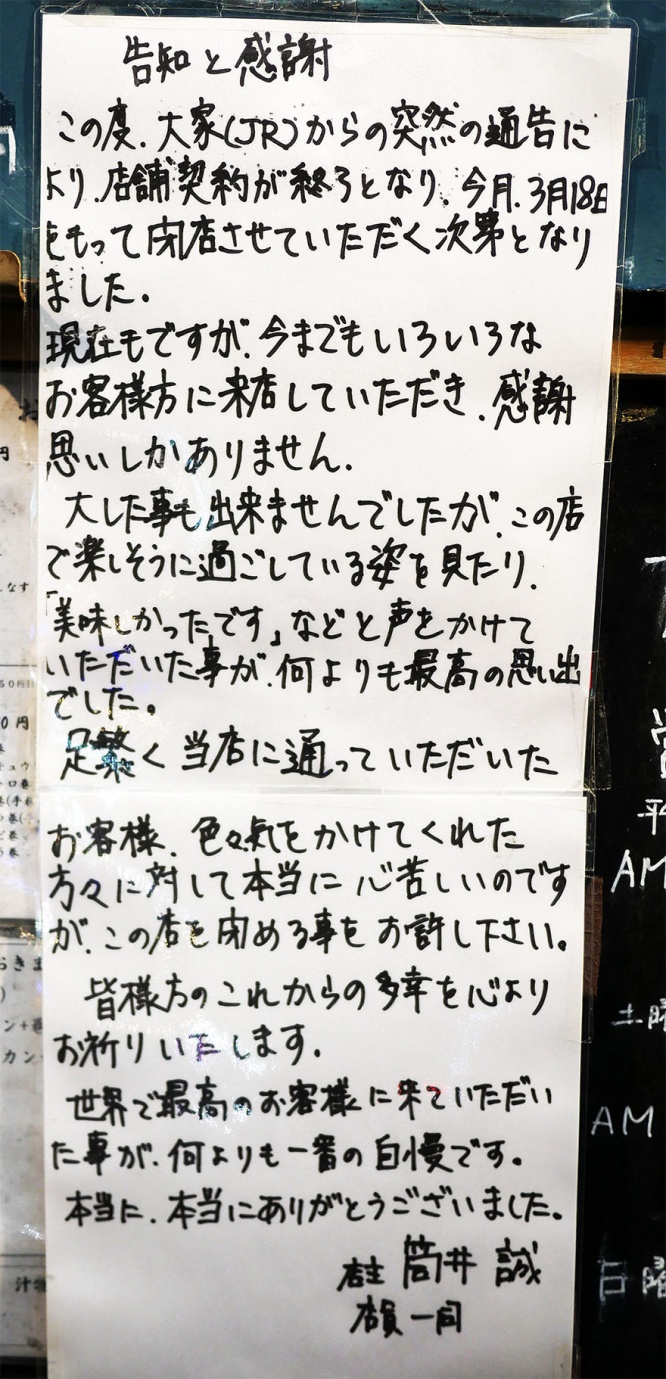 告知と感謝
この度、大家(JR)からの突然の通告に
より、店舗契約が終了となり、今月、3月18日
をもって閉店させていただく次第となり
ました。
現在もですが、今までもいろいろな
お客様方に来店していただき、感謝
思いしかありません。
大した事も出来ませんでしたが、この店
で楽しそうに過ごしている姿を見たり、
「美味しかったです」などと声をかけて
いただいた事が、何よりも最高の思い出
でした。
足繁く当店に通っていただいた
お客様、色々気をかけてくれた
方々に対して本当に心苦しいのです
が、この店を閉める事をお許し下さい。
皆様方のこれからの多幸を心より
お祈りいたします。
世界で最高のお客様に来ていただい
た事が、何よりも一番の自慢です。
本当に、本当にありがとうございました。
店主 筒井 誠
店員一同
平
AM
土曜
AM
日曜
円
なす
50円
0円
ン+
カン
汁物